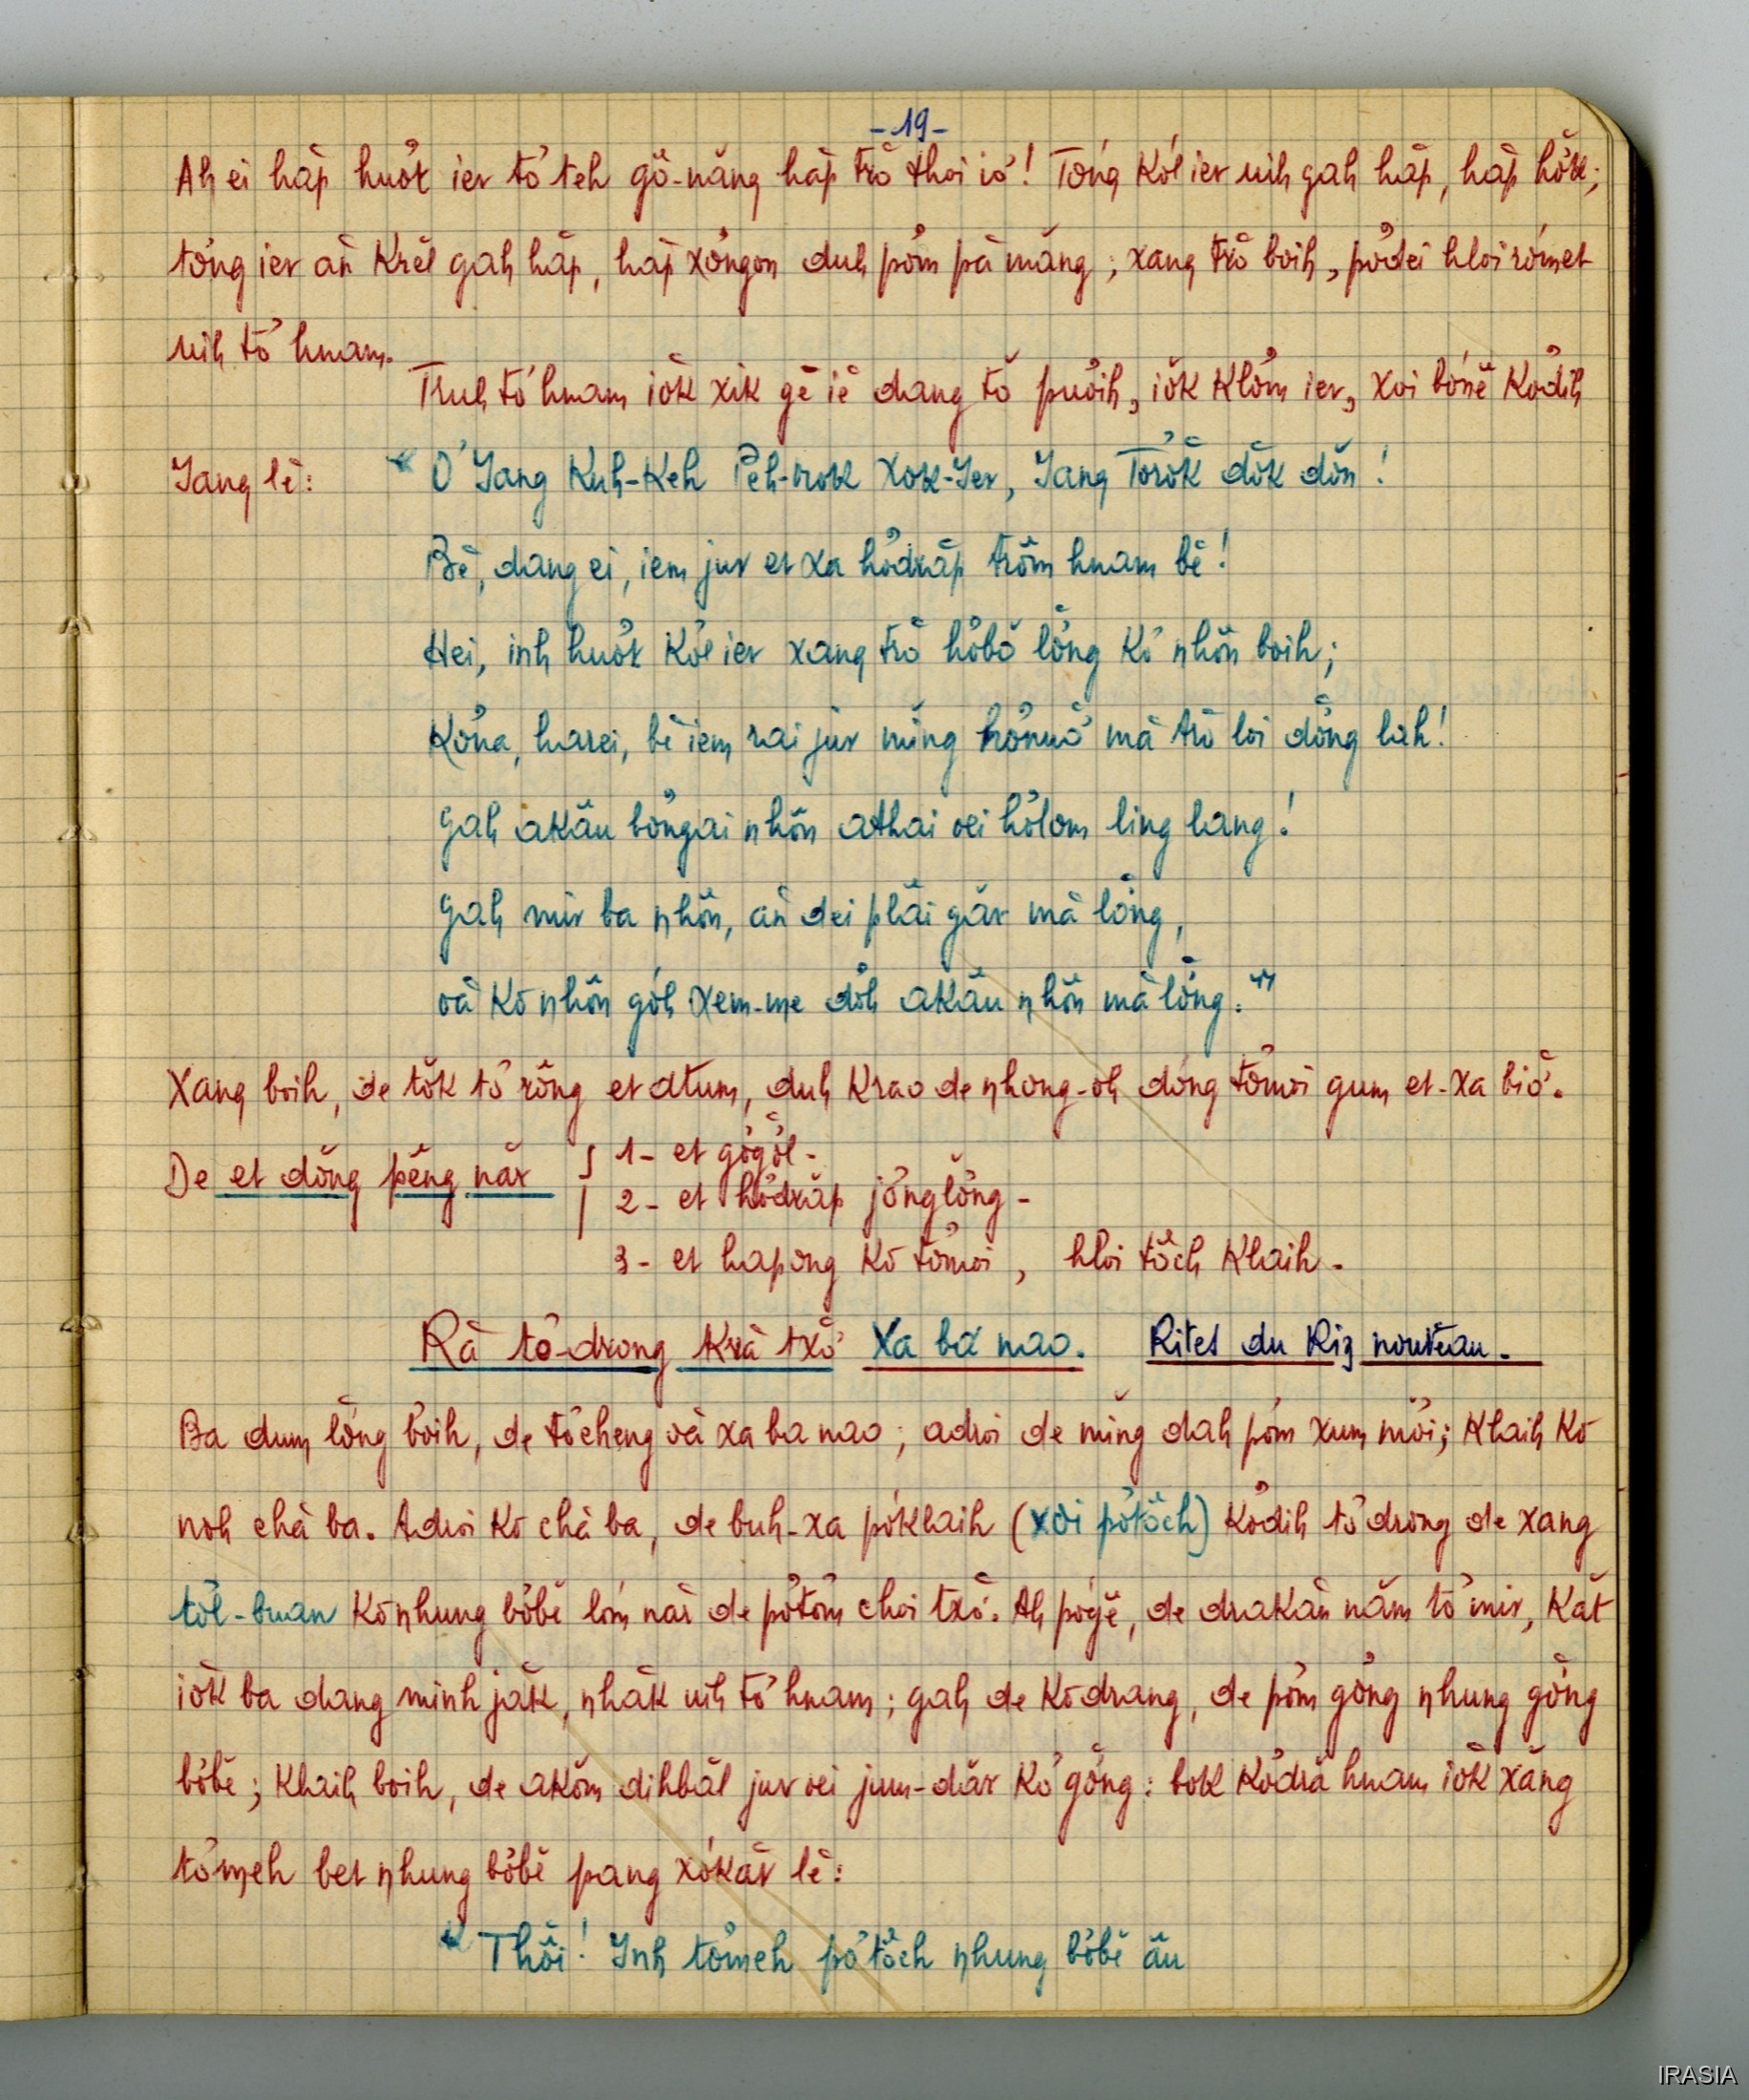 -19-
Ah ei hăp huơ̆t ier tơ̆ teh gô̆-năng hăp trŏ thoi iơ̆! Tơ̆ng kơ̆l ier uih gah hăp, hăp hơ̆k;
tơ̆ng ier ăn krĕl gah hăp, hăp xơ̆ngon duh pơ̆m pă măng; xang trŏ boih, pơ̆dei hloi rơ̆met
uih tơ̆ hnam.
Truh tơ̆ hnam iŏk xik gĕ iĕ dang tơ̆ puơ̆ih, iŏk klơ̆m ier, xoi bơ̆nĕ kơ̆dih
Jang lĕ: « Ơ̆ Jang Kuh-Keh Peh-brok Xok-Ier, Jang Tơrŏk dŏk dŏn!
Bĕ, dang ei, iem jur et xa hơ̆drăp trŏm hnam bĕ!
Hei, inh huơ̆t kơ̆l ier xang trŏ hơ̆bŏ lơ̆ng kơ̆ nhôn boih;
Kơ̆na, harei, bĕ iem rai jur ming hơ̆nuơ̆ mă trŏ loi dơ̆ng lah!
Gah akău bơ̆ngai nhôn athai oei hơ̆lom ling lang!
Gah mir ba nhôn, ăn dei plăi găr mă lơ̆ng,
oă kơ nhôn gơ̆h xem-me dơ̆h akău nhôn mă lơ̆ng. »
Xang boih, de tŏk tơ̆ rông et atum, duh krao de nhong-oh dơ̆ng tơ̆moi gum et-xa biơ̆.
De et dơ̆ng pêng năr
1- et gơ̆gơ̆l -
2- et hơ̆drăp jơ̆nglơ̆ng -
3- et hapong kơ tơ̆moi, hloi tŏch klaih -
Ră tơ̆-drong kră txŏ xa ba nao. Rites du Riz nouveau.
Ba dum lơ̆ng boih, de tơ̆cheng oă xa ba nao; adroi de ming dah pơ̆m xum mŏi; klaih kơ
noh chă ba. Adroi kơ chă ba, de buh-xa pơ̆klaih (xoi pơ̆tŏch) kơ̆dih tơ̆drong de xang
tơ̆l-buan kơ nhung bơ̆bĕ lơ̆m năr de pơ̆tơ̆m choi txŏ. Ah pơ̆gĕ, de drakăn năm tơ̆ mir, kăt
iŏk ba dang minh jăk, nhăk uih tơ̆ hnam; gah de kơ̆drang, de pơ̆m gơ̆ng nhung gơ̆ng
bơ̆bĕ; klaih boih, de akŏm dihbăl jur oei jum-dăr kơ̆ gơ̆ng: bok kơ̆dră hnam iŏk xăng
tơ̆meh bet nhung bơ̆bĕ pang xơ̆kăr lĕ:
« Thôi! Inh tơ̆meh pơ̆tŏch nhung bơ̆bĕ ău
IRASIA